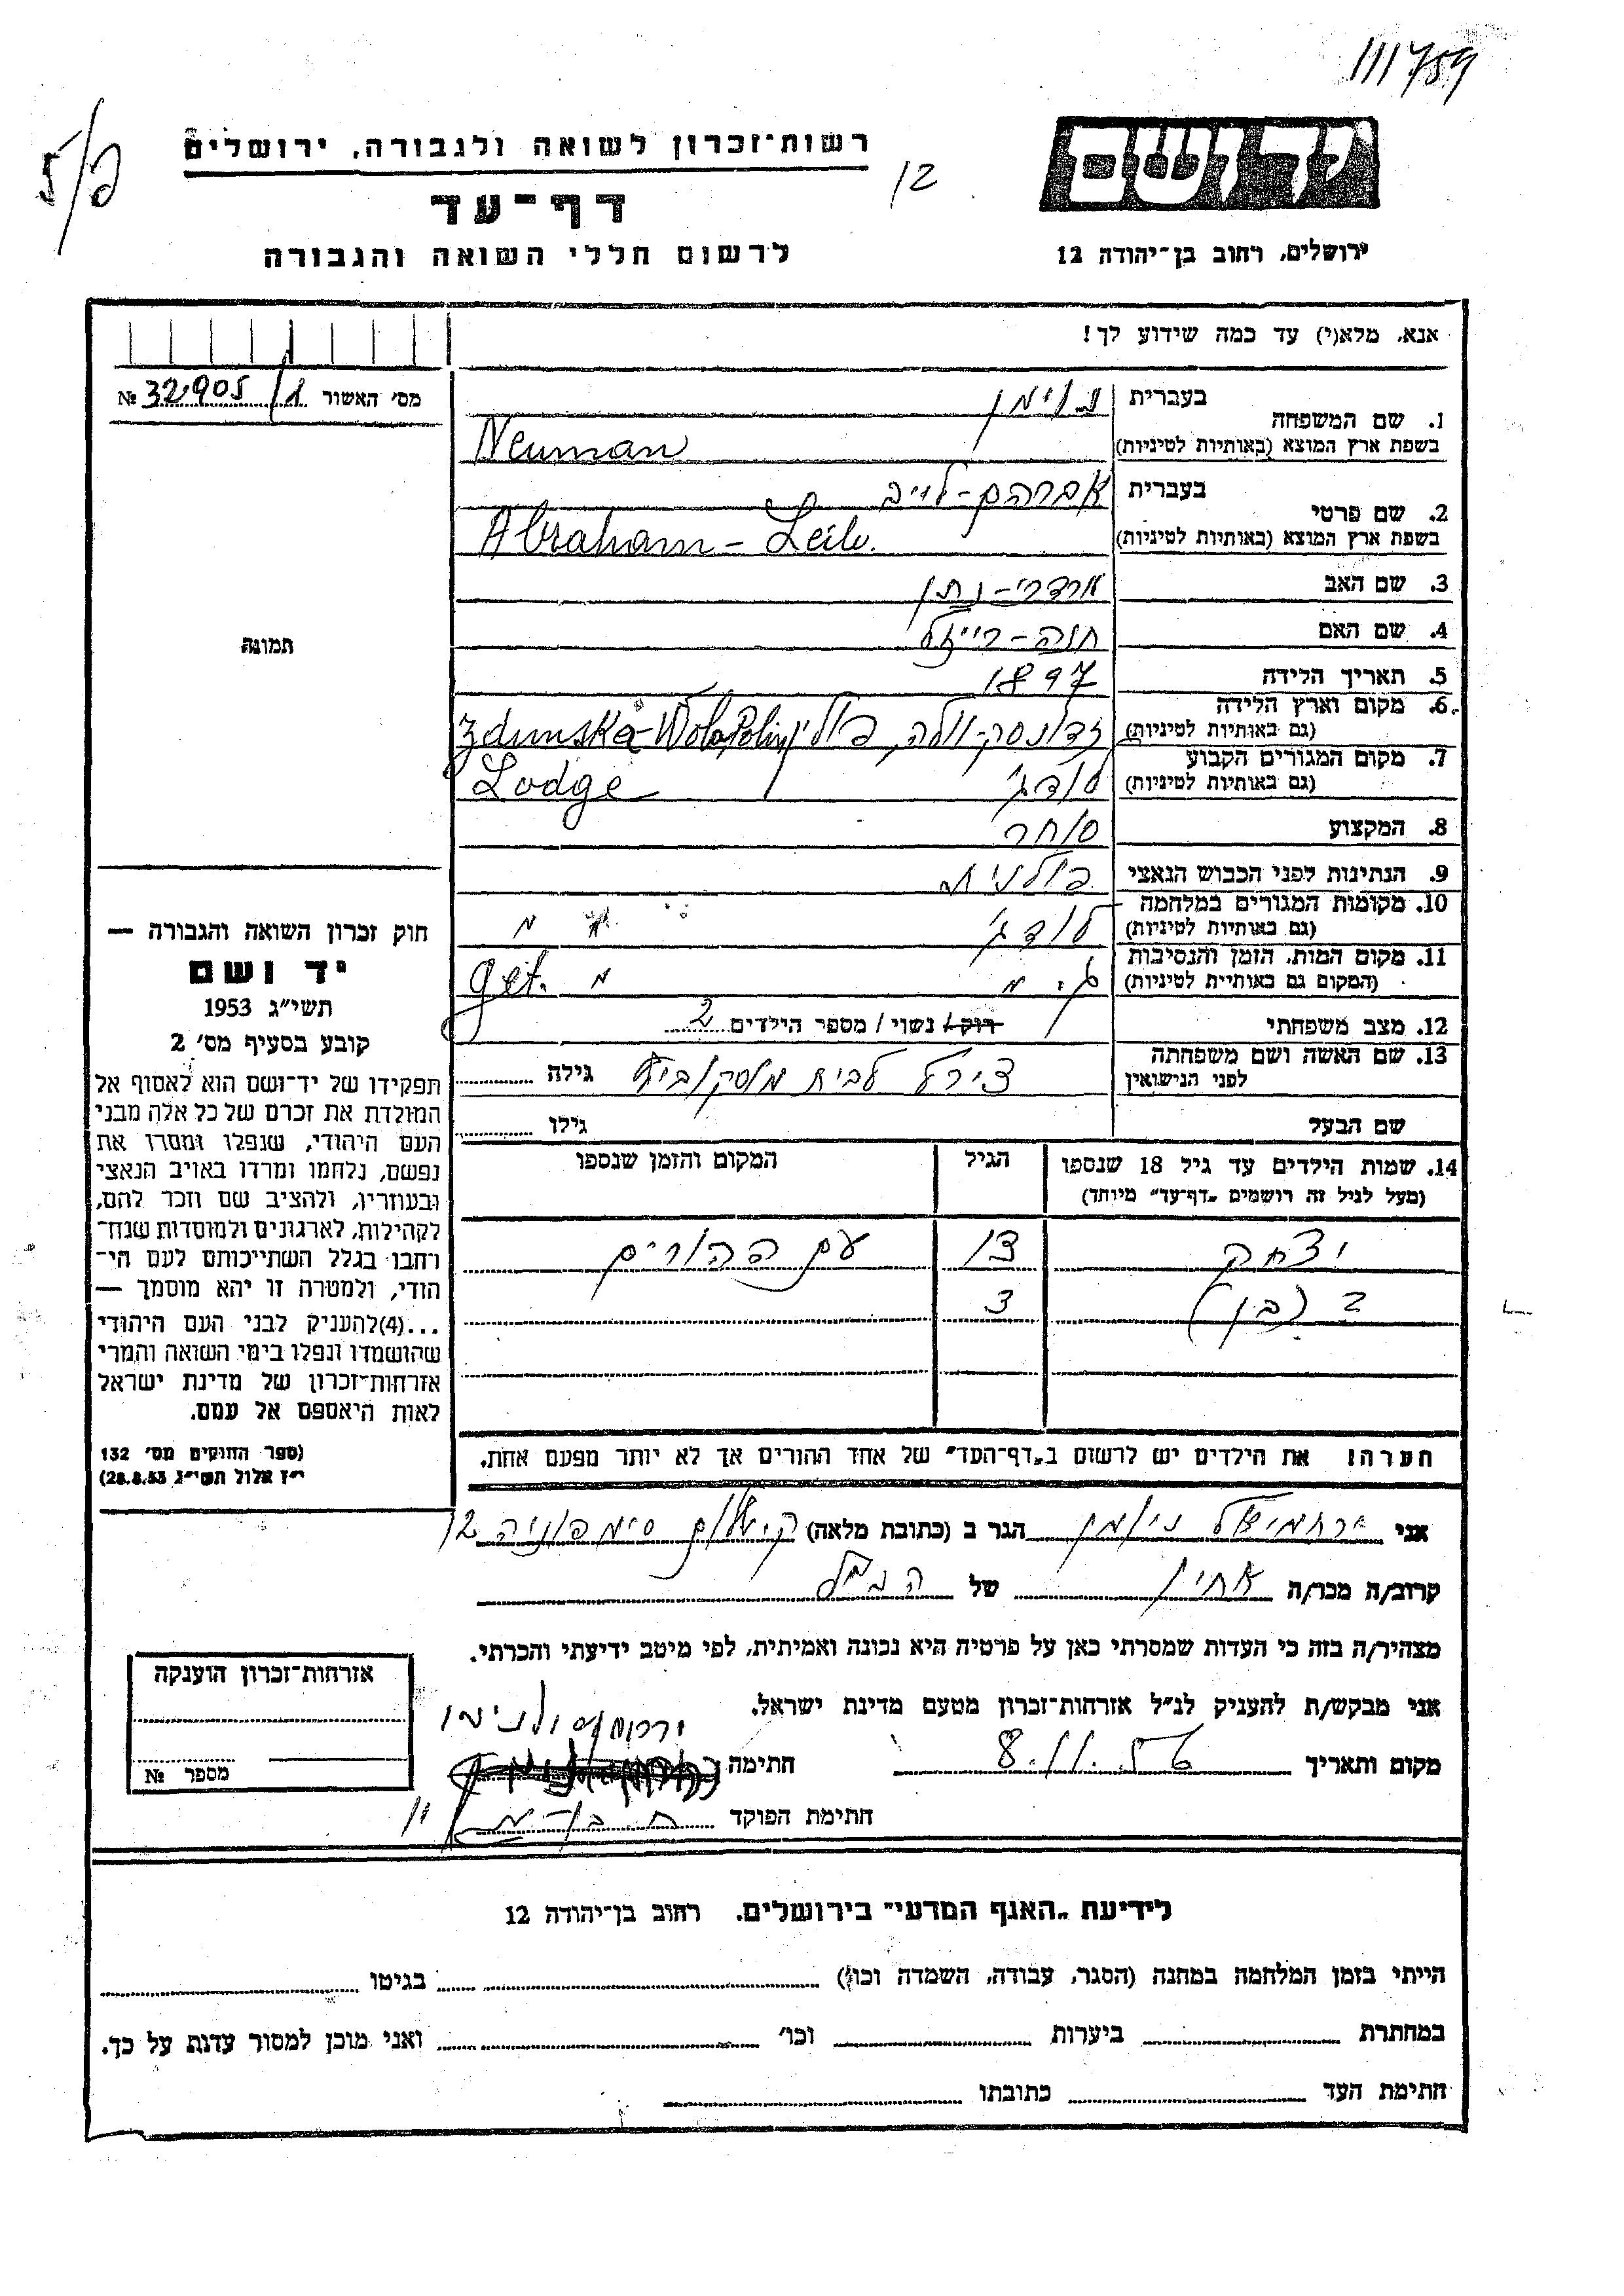 111759
רשות־זכרון לשואה ולגבורה, ירושלים
12
יד ושם
דף־עד
לרשום חללי השואה והגבורה
ירושלים, רחוב בן־יהודה 12
אנא, מלא(י) עד כמה שידוע לך!
מס׳ האשור 1/32905 №
1. שם המשפחה בעברית נוימן
בשפת ארץ המוצא (באותיות לטיניות) Neuman
2. שם פרטי בעברית אברהם-לייב
בשפת ארץ המוצא (באותיות לטיניות) Abraham - Leib.
3. שם האב נתן
4. שם האם חוה-רייזל
תמונה
5. תאריך הלידה 1897
6. מקום וארץ הלידה
(גם באותיות לטיניות) זדונסק-וולה, פולין Zdunska-Wola, Polin
7. מקום המגורים הקבוע
(גם באותיות לטיניות) לודג׳ Lodge
8. המקצוע סוחר
9. הנתינות לפני הכבוש הנאצי פולנית
10. מקומות המגורים במלחמה
(גם באותיות לטיניות) לודג׳
11. מקום המות, הזמן והנסיבות
(המקום גם באותיית לטיניות) get.
12. מצב משפחתי רוק / נשוי / מספר הילדים 2
13. שם האשה ושם משפחתה
לפני הנישואין צירל לבית מוסקוביץ גילה
שם הבעל גילו
14. שמות הילדים עד גיל 18 שנספו הגיל המקום והזמן שנספו
(מעל לגיל זה רושמים „דף־עד״ מיוחד)
יצחק 13 עם ההורים
2 (בן) 3
הערה! את הילדים יש לרשום ב„דף־העד״ של אחד ההורים אך לא יותר מפעם אחת.
חוק זכרון השואה והגבורה —
יד ושם
תשי״ג 1953
קובע בסעיף מס׳ 2
תפקידו של יד־ושם הוא לאסוף אל
המולדת את זכרם של כל אלה מבני
העם היהודי, שנפלו ומסרו את
נפשם, נלחמו ומרדו באויב הנאצי
ובעוזריו, ולהציב שם וזכר להם,
לקהילות, לארגונים ולמוסדות שנח־
רחבו בגלל השתייכותם לעם הי־
הודי, ולמטרה זו יהא מוסמך —
...(4)להעניק לבני העם היהודי
שהושמדו ונפלו בימי השואה והמרי
אזרחות־זכרון של מדינת ישראל
לאות היאספם אל עמם.
(ספר החוקים מס׳ 132
י״ז אלול תשי״ג 28.8.53)
אני ירחמיאל ניומן הגר ב (כתובת מלאה) 12
קרוב/ה מכר/ה אחיו של הנ״ל
מצהיר/ה בזה כי העדות שמסרתי כאן על פרטיה היא נכונה ואמיתית, לפי מיטב ידיעתי והכרתי.
אני מבקש/ת להעניק לנ״ל אזרחות־זכרון מטעם מדינת ישראל.
מקום ותאריך 8.11.56 חתימה
חתימת הפוקד
אזרחות־זכרון הוענקה
מספר №
לידיעת „האגף המדעי״ בירושלים, רחוב בן־יהודה 12
הייתי בזמן המלחמה במחנה (הסגר, עבודה, השמדה וכו׳) בגיטו
במחתרת ביערות וכו׳ ואני מוכן למסור עדות על כך.
חתימת העד כתובתו